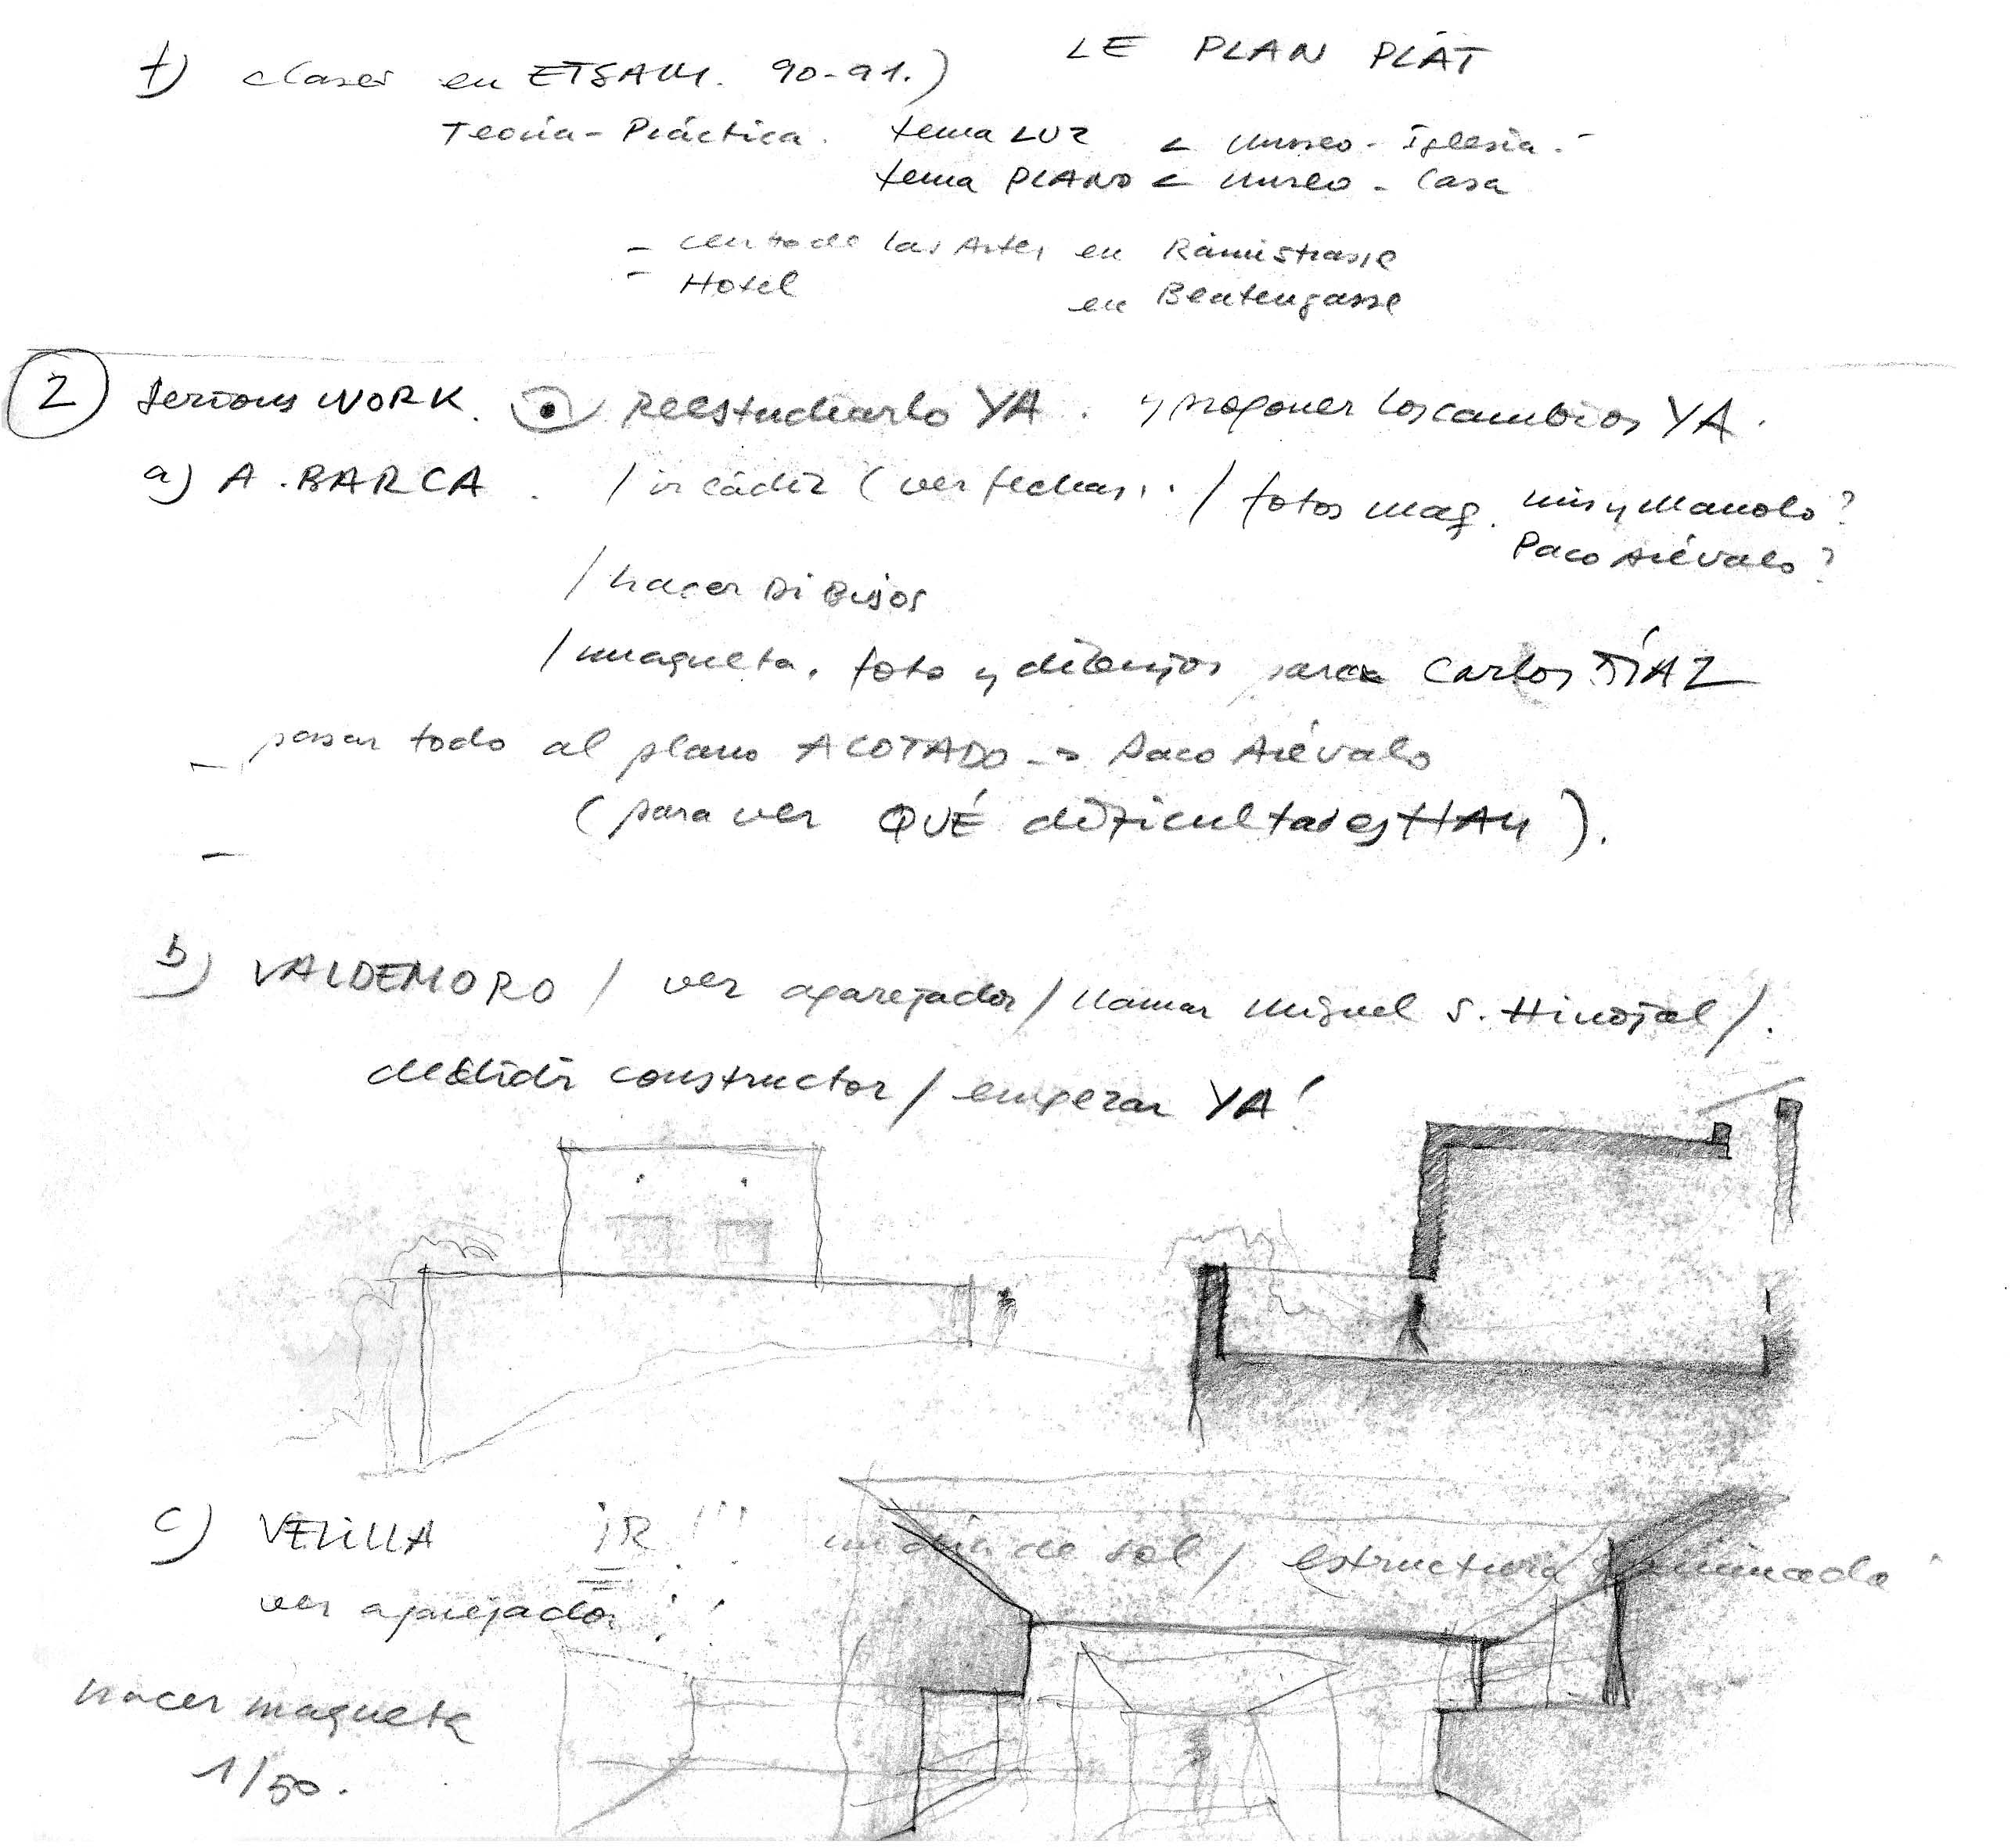 f) clases en ETSAM. 90-91.) LE PLAN PLÂT
Teoría-Práctica. tema LUZ < Museo - Iglesia.-
tema PLANO < Museo - Casa
- centro de las Artes en Rämistrasse
- Hotel en Beatengasse
2 Serious WORK. Reestudiarlo YA. y proponer los cambios YA.
a) A. BARCA. / ir Cádiz (ver fechas.. / fotos maq. Luis y Manolo?
Paco Arévalo?
/ hacer DiBujos
/ maqueta, foto y dibujos para Carlos DÍAZ
- pasar todo al plano ACOTADO -> Paco Arévalo
(para ver QUÉ dificultades HAY).
-
b) VALDEMORO / ver aparejador / llamar Miguel S. Hinojal /.
decidir constructor / empezar YA!
c) VELILLA iR!!! un día de sol / estructura terminada
ver aparejador!!
hacer maqueta
1/50.